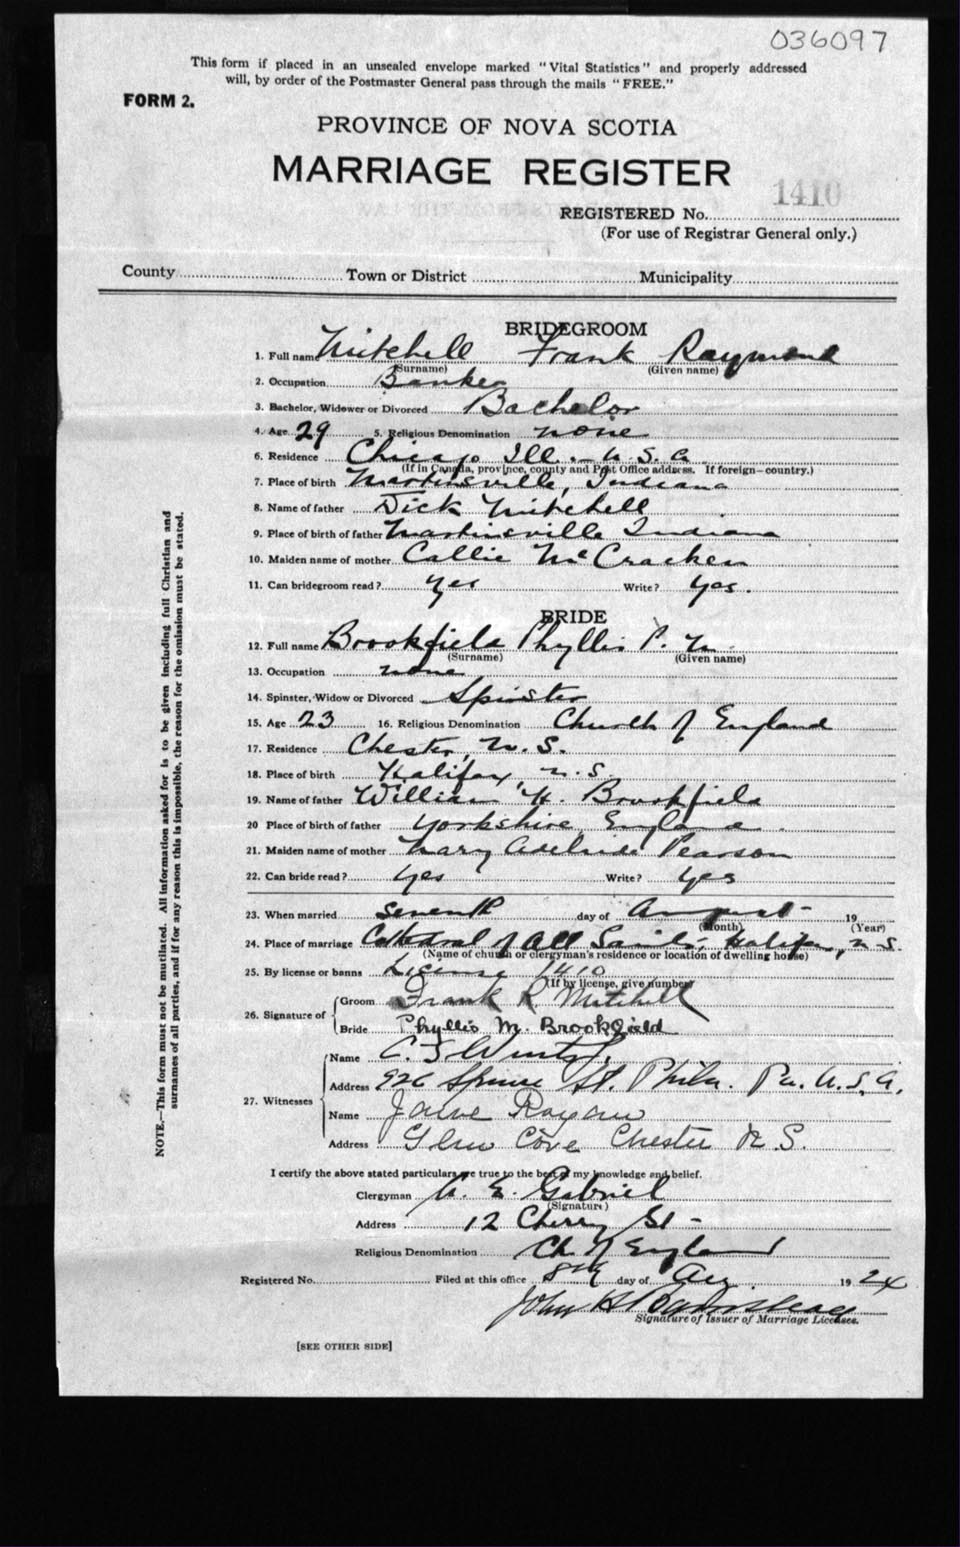 036097
This form if placed in an unsealed envelope marked "Vital Statistics" and properly addressed
will, by order of the Postmaster General pass through the mails "FREE."
FORM 2.
PROVINCE OF NOVA SCOTIA
MARRIAGE REGISTER
1410
REGISTERED No.
(For use of Registrar General only.)
County Town or District Municipality
BRIDEGROOM
1. Full name Mitchell Frank Raymond
(Surname) (Given name)
2. Occupation Banker
3. Bachelor, Widower or Divorced Bachelor
4. Age 29 5. Religious Denomination none
6. Residence Chicago Ill. U.S.A
(If in Canada, province, county and Post Office address. If foreign—country.)
7. Place of birth Martinsville, Indiana
8. Name of father Dick Mitchell
9. Place of birth of father Martinsville Indiana
10. Maiden name of mother Callie McCracken
11. Can bridegroom read? Yes Write? Yes.
BRIDE
12. Full name Brookfield Phyllis P. M
(Surname) (Given name)
13. Occupation none
14. Spinster, Widow or Divorced Spinster
15. Age 23 16. Religious Denomination Church of England
17. Residence Chester, N.S.
18. Place of birth Halifax N.S
19. Name of father William H. Brookfield
20 Place of birth of father Yorkshire England.
21. Maiden name of mother Mary Adelaide Pearson
22. Can bride read? Yes Write? Yes
23. When married seventh day of August 19
(Month) (Year)
24. Place of marriage Cathedral of All Saints, Halifax, N.S.
(Name of church or clergyman's residence or location of dwelling house)
25. By license or banns License 1410
(If by license, give number)
26. Signature of
Groom Frank R Mitchell
Bride Phyllis M. Brookfield
27. Witnesses
Name C. J.
Address 926 Spruce St. Phila. Pa. U.S.A.
Name
Address Glen Cove Chester N.S.
I certify the above stated particulars are true to the best of my knowledge and belief.
Clergyman E. Gabriel
(Signature)
Address 12 Cherry St -
Religious Denomination Ch. of England
Registered No. Filed at this office 8th day of Aug 1924
John H
Signature of Issuer of Marriage Licenses.
[SEE OTHER SIDE]
NOTE.—This form must not be mutilated. All information asked for is to be given including full Christian and
surnames of all parties, and if for any reason this is impossible, the reason for the omission must be stated.